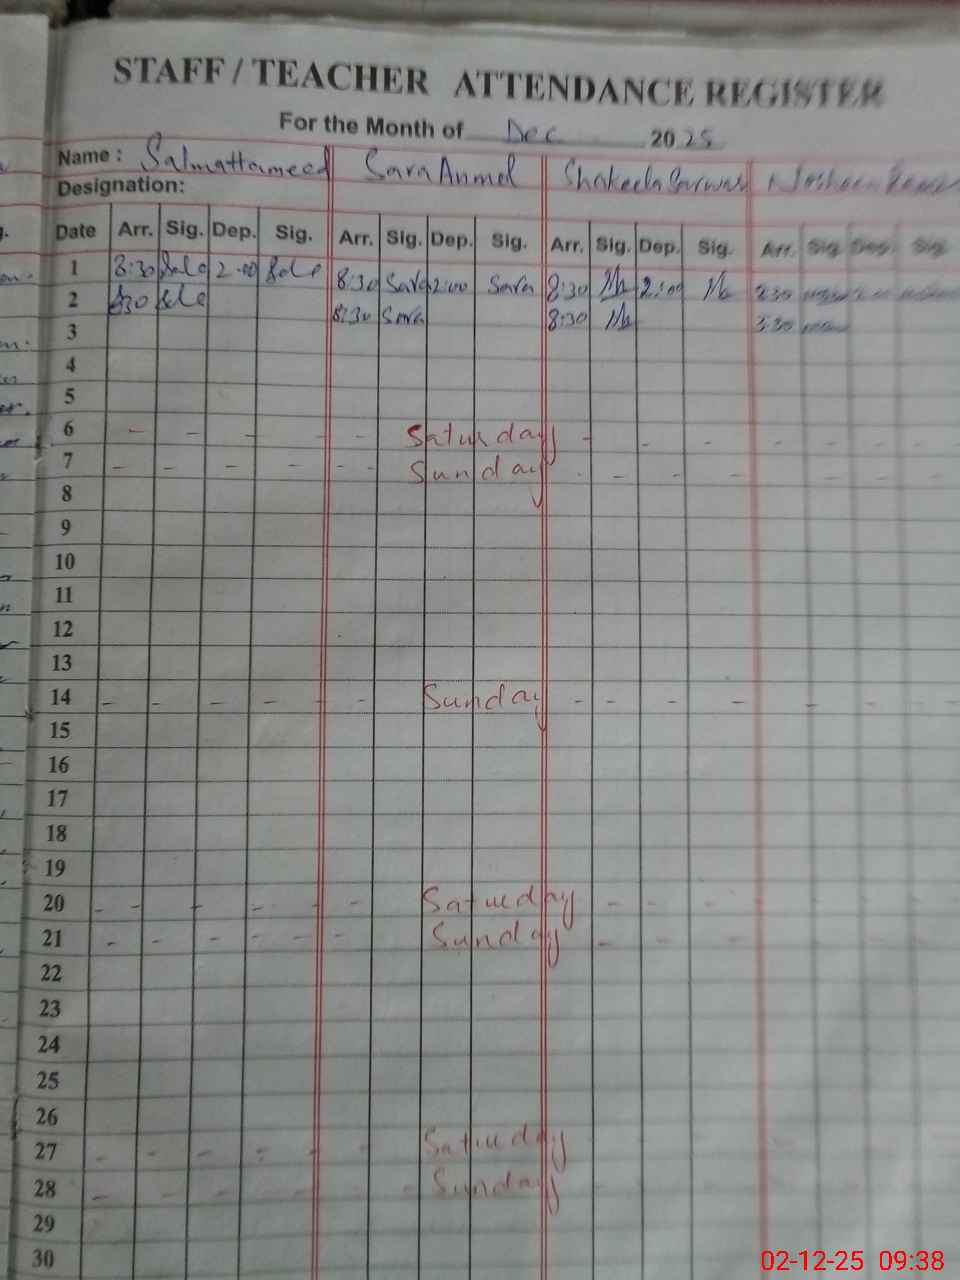 STAFF / TEACHER ATTENDANCE REGISTER
For the Month of Dec 2025
Name : Salma Hameed Sara Anmol Shakeela Sarwar
Designation:
Date Arr. Sig. Dep. Sig. Arr. Sig. Dep. Sig. Arr. Sig. Dep. Sig. Arr. Sig. Dep. Sig.
1 8:30 2:00 8:30 Sara 2:00 Sara 8:30 2:00
2 8:30 8:30 Sara 8:30
3
4
5
6 - - - - - Saturday - - - - - -
7 - - - - - - Sunday - - - - - -
8
9
10
11
12
13
14 - - - - - - Sunday - - - - - - -
15
16
17
18
19
20 - - - - - - Satueday - - - -
21 - - - - - - Sunday - - - - -
22
23
24
25
26
27 - - - - - - Satueday
28 - - - - - - Sunday
29
30
02-12-25 09:38